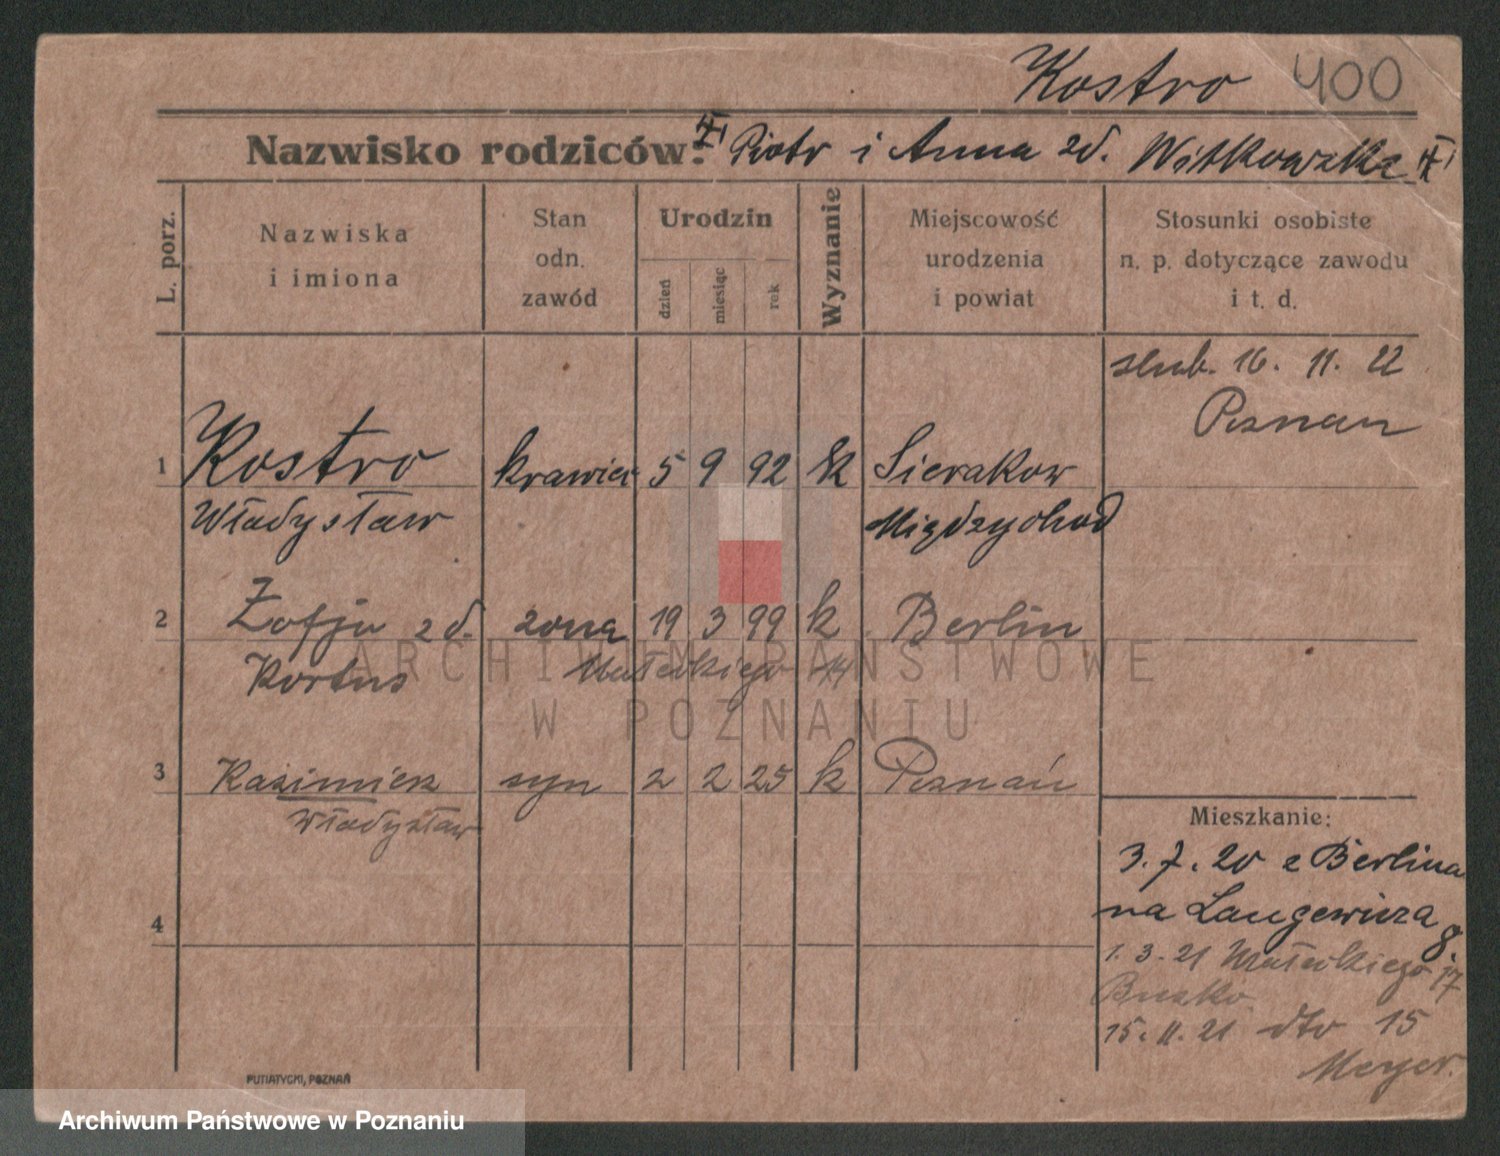 Kostro 400
Nazwisko rodziców: Piotr i Anna zd. Witkowska
L. porz.
Nazwiska
i imiona
Stan
odn.
zawód
Urodzin
dzień
miesiąc
rok
Wyznanie
Miejscowość
urodzenia
i powiat
Stosunki osobiste
n. p. dotyczące zawodu
i t. d.
slub. 16. 11. 22
Poznan
1 Kostro krawiec 5 9 92 k Sierakow
Władysław Międzychod
2 Zofja zd. zona 19 3 99 k Berlin
Kortus Małeckiego 14
3 Kazimierz syn 2 2 25 k Poznań
Władysław
Mieszkanie:
3. 7. 20 z Berlina
na Langewicza 8.
4
1. 3. 21 Małeckiego 17
15. 11. 21 dto 15
Meyer.
PUTIATYCKI, POZNAŃ
ARCHIWUM PAŃSTWOWE
W POZNANIU
Archiwum Państwowe w Poznaniu